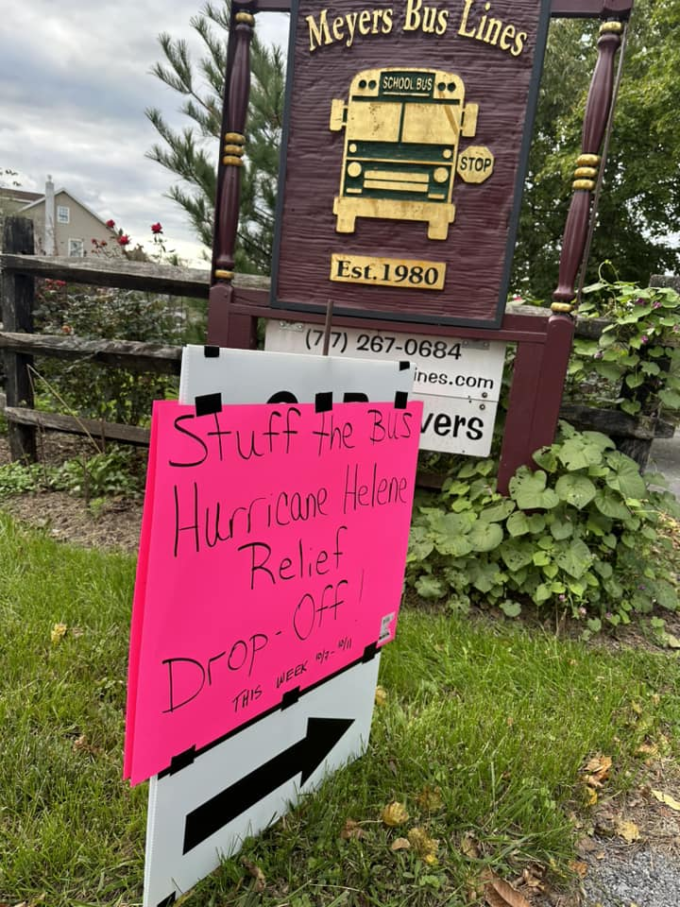 Meyers Bus Lines
SCHOOL BUS
STOP
Est. 1980
(717) 267-0684
ines.com
vers
Stuff the Bus
Hurricane Helene
Relief
Drop-Off!
THIS WEEK 10/7-10/11